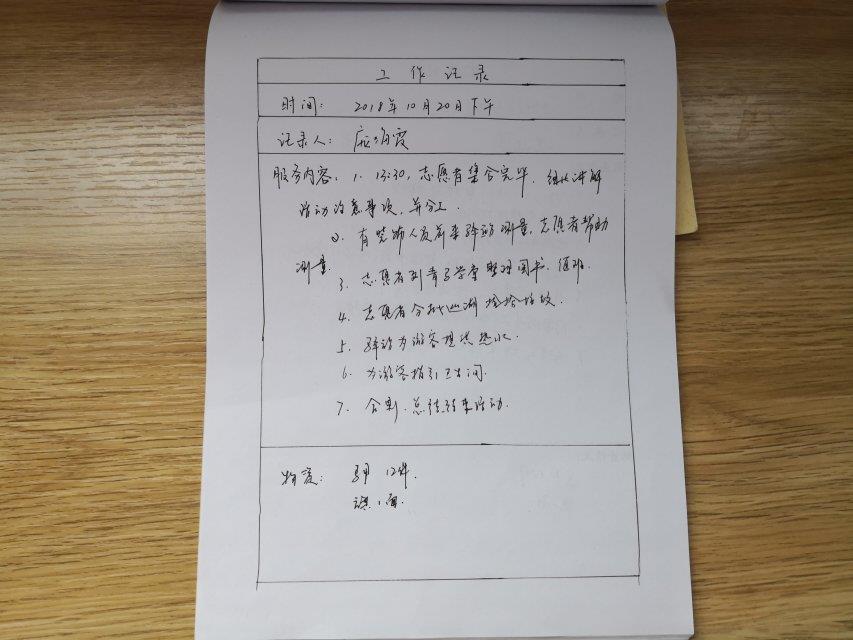 工作记录
时间: 2018年10月20日下午
记录人:
服务内容: 1. 13:30, 志愿者集合完毕. 组长讲解
活动注意事项, 并分工.
2. 有装饰人员前来驿站测量, 志愿者帮助
测量.
3. 志愿者到青子学堂整理图书. 值班.
4. 志愿者分批巡湖捡拾垃圾.
5. 驿站为游客提供热水.
6. 为游客指引卫生间.
7. 合影. 总结结束活动.
物资: 马甲 12件.
旗1面.